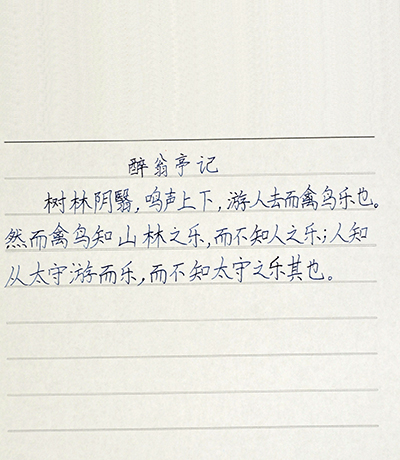 醉翁亭记
树林阴翳,鸣声上下,游人去而禽鸟乐也。
然而禽鸟知山林之乐,而不知人之乐;人知
从太守游而乐,而不知太守之乐其也。